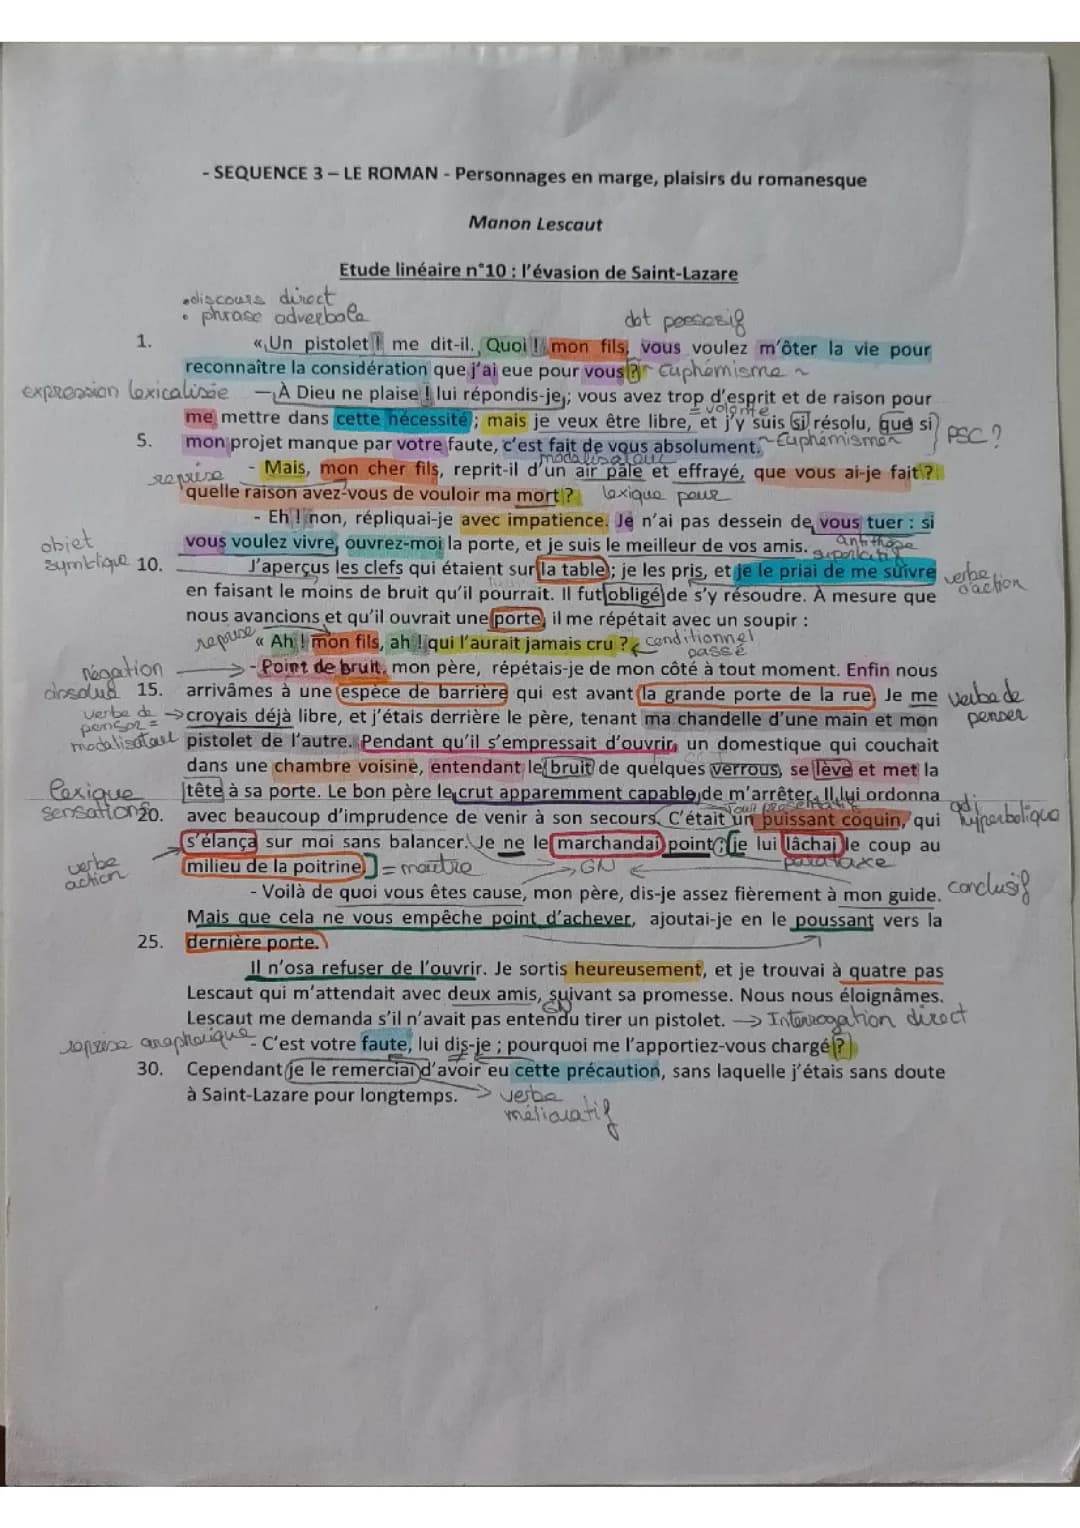 - SEQUENCE 3 – LE ROMAN - Personnages en marge, plaisirs du romanesque
Manon Lescaut
Etude linéaire n°10 : l'évasion de Saint-Lazare
•discours direct
• phrase adverbale
dét possesif
1. « Un pistolet ! me dit-il. Quoi ! mon fils, vous voulez m'ôter la vie pour
reconnaître la considération que j'ai eue pour vous ? Euphémisme
expression lexicalisée – À Dieu ne plaise ! lui répondis-je ; vous avez trop d'esprit et de raison pour
= volonté
me mettre dans cette nécessité ; mais je veux être libre, et j'y suis si résolu, que si
PSC ?
5. mon projet manque par votre faute, c'est fait de vous absolument. Euphémisme
modalisateur
- Mais, mon cher fils, reprit-il d'un air pâle et effrayé, que vous ai-je fait ?
reprise
quelle raison avez-vous de vouloir ma mort ? lexique peur
- Eh ! non, répliquai-je avec impatience. Je n'ai pas dessein de vous tuer : si
vous voulez vivre, ouvrez-moi la porte, et je suis le meilleur de vos amis. antithèse
superlatif
objet
symbtique 10. J'aperçus les clefs qui étaient sur la table ; je les pris, et je le priai de me suivre
verbe d'action
en faisant le moins de bruit qu'il pourrait. Il fut obligé de s'y résoudre. À mesure que
nous avancions et qu'il ouvrait une porte, il me répétait avec un soupir :
reprise « Ah ! mon fils, ah ! qui l'aurait jamais cru ? conditionnel
passé
négation
- Point de bruit, mon père, répétais-je de mon côté à tout moment. Enfin nous
absolue 15. arrivâmes à une espèce de barrière qui est avant la grande porte de la rue. Je me verbe de
penser
verbe de
penser =
modalisateur
croyais déjà libre, et j'étais derrière le père, tenant ma chandelle d'une main et mon
pistolet de l'autre. Pendant qu'il s'empressait d'ouvrir, un domestique qui couchait
dans une chambre voisine, entendant le bruit de quelques verrous, se lève et met la
lexique
sensations
tête à sa porte. Le bon père le crut apparemment capable de m'arrêter. Il lui ordonna
20. avec beaucoup d'imprudence de venir à son secours. C'était un puissant coquin, qui adj
hyperbolique
s'élança sur moi sans balancer. Je ne le marchandai point ; je lui lâchai le coup au
verbe
action
milieu de la poitrine. = meurtre GN parataxe
- Voilà de quoi vous êtes cause, mon père, dis-je assez fièrement à mon guide. conclusif
Mais que cela ne vous empêche point d'achever, ajoutai-je en le poussant vers la
25. dernière porte.
Il n'osa refuser de l'ouvrir. Je sortis heureusement, et je trouvai à quatre pas
Lescaut qui m'attendait avec deux amis, suivant sa promesse. Nous nous éloignâmes.
GN
Lescaut me demanda s'il n'avait pas entendu tirer un pistolet. → Interrogation direct
reprise anaphorique - C'est votre faute, lui dis-je ; pourquoi me l'apportiez-vous chargé ?
30. Cependant je le remerciai d'avoir eu cette précaution, sans laquelle j'étais sans doute
à Saint-Lazare pour longtemps. → verbe
mélioratif